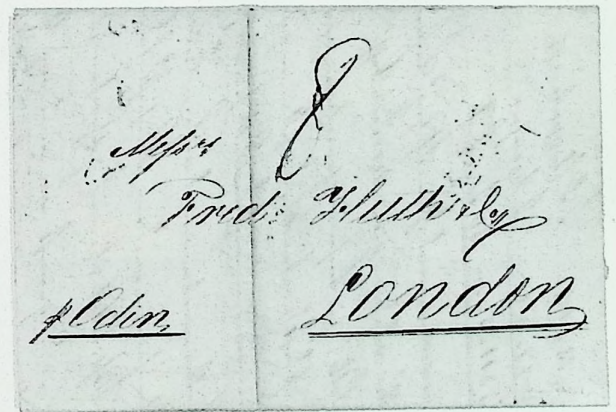 8
Messrs
Fredk Huth & Co
London
p Odin